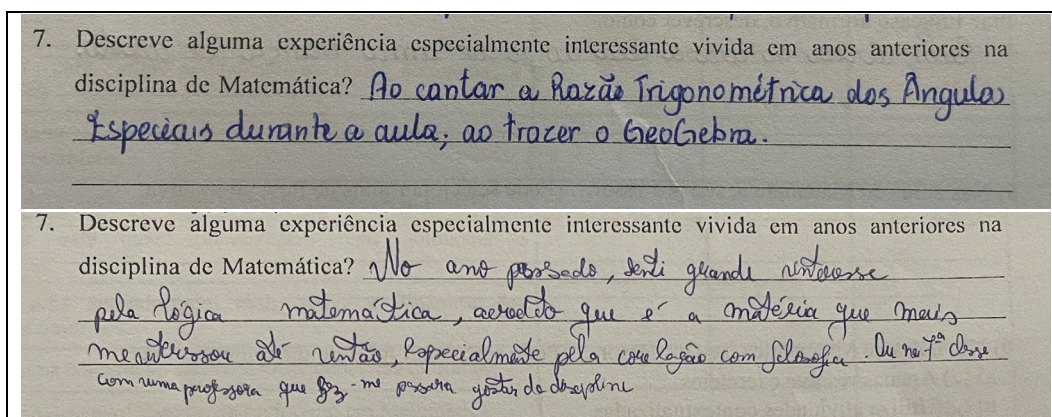 7. Descreve alguma experiência especialmente interessante vivida em anos anteriores na
disciplina de Matemática? Ao cantar a Razão Trigonométrica dos Ângulos
Especiais durante a aula; ao trazer o GeoGebra.
7. Descreve alguma experiência especialmente interessante vivida em anos anteriores na
disciplina de Matemática? No ano passado, senti grande interesse
pela lógica matemática, acredito que é a matéria que mais
me interessou até então, especialmente pela correlação com filosofia. Ou na 7ª classe
com uma professora que fez-me passar a gostar da disciplina